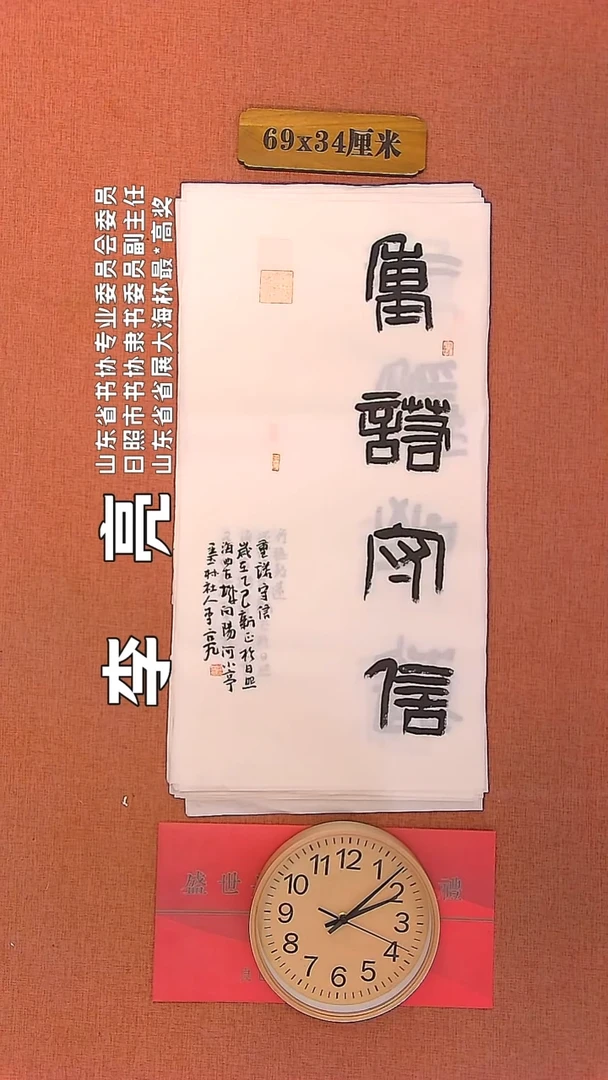 69x34厘米
山东省书协专业委员会委员
日照市书协隶书委员副主任
山东省省展大海杯最*高奖
李亮
重諾守信
重諾守信
歲在乙巳新正於日照
海曲古城向陽河小亭
墨林社人李亮
盛世
禮
12
1
2
3
4
5
6
7
8
9
10
11